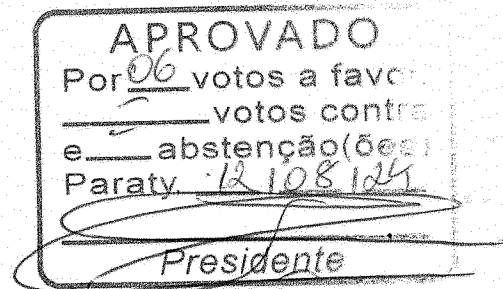 APROVADO
Por 06 votos a favo
votos contra
e abstenção(ões)
Paraty, 12/08/24
Presidente